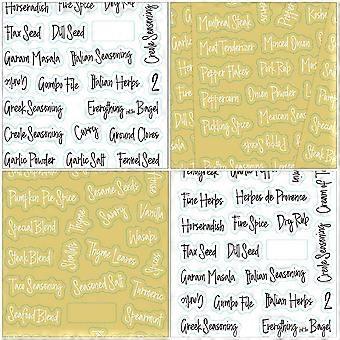 Horseradish Five Spice Dry Rub
Flax Seed Dill Seed
Garam Masala Italian Seasoning
Creole Seasoning
Garlic Gumbo File Italian Herbs 2
Greek Seasoning Everything but the Bagel
Creole Seasoning Curry Ground Cloves
Garlic Powder Garlic Salt Fennel Seed
Montreal Steak
Meat Tenderizer Mexican Spice
Pepper Flakes Pork Rub Minced Onion
Peppercorn Onion Powder
Pickling Spice Mexican Spice
Pumpkin Pie Spice Sesame Seeds
Special Blend Savory Vanilla
Steak Blend Thyme Thyme Leaves Wasabi
Taco Seasoning Seasoned Salt Turmeric
Spices
Seafood Blend Spearmint
Fine Herbs Herbes de Provence
Horseradish Five Spice Dry Rub
Cream of
Flax Seed Dill Seed
Garam Masala Italian Seasoning
Creole Seasoning
Garlic Gumbo File Italian Herbs 2
Greek Seasoning Everything but the Bagel